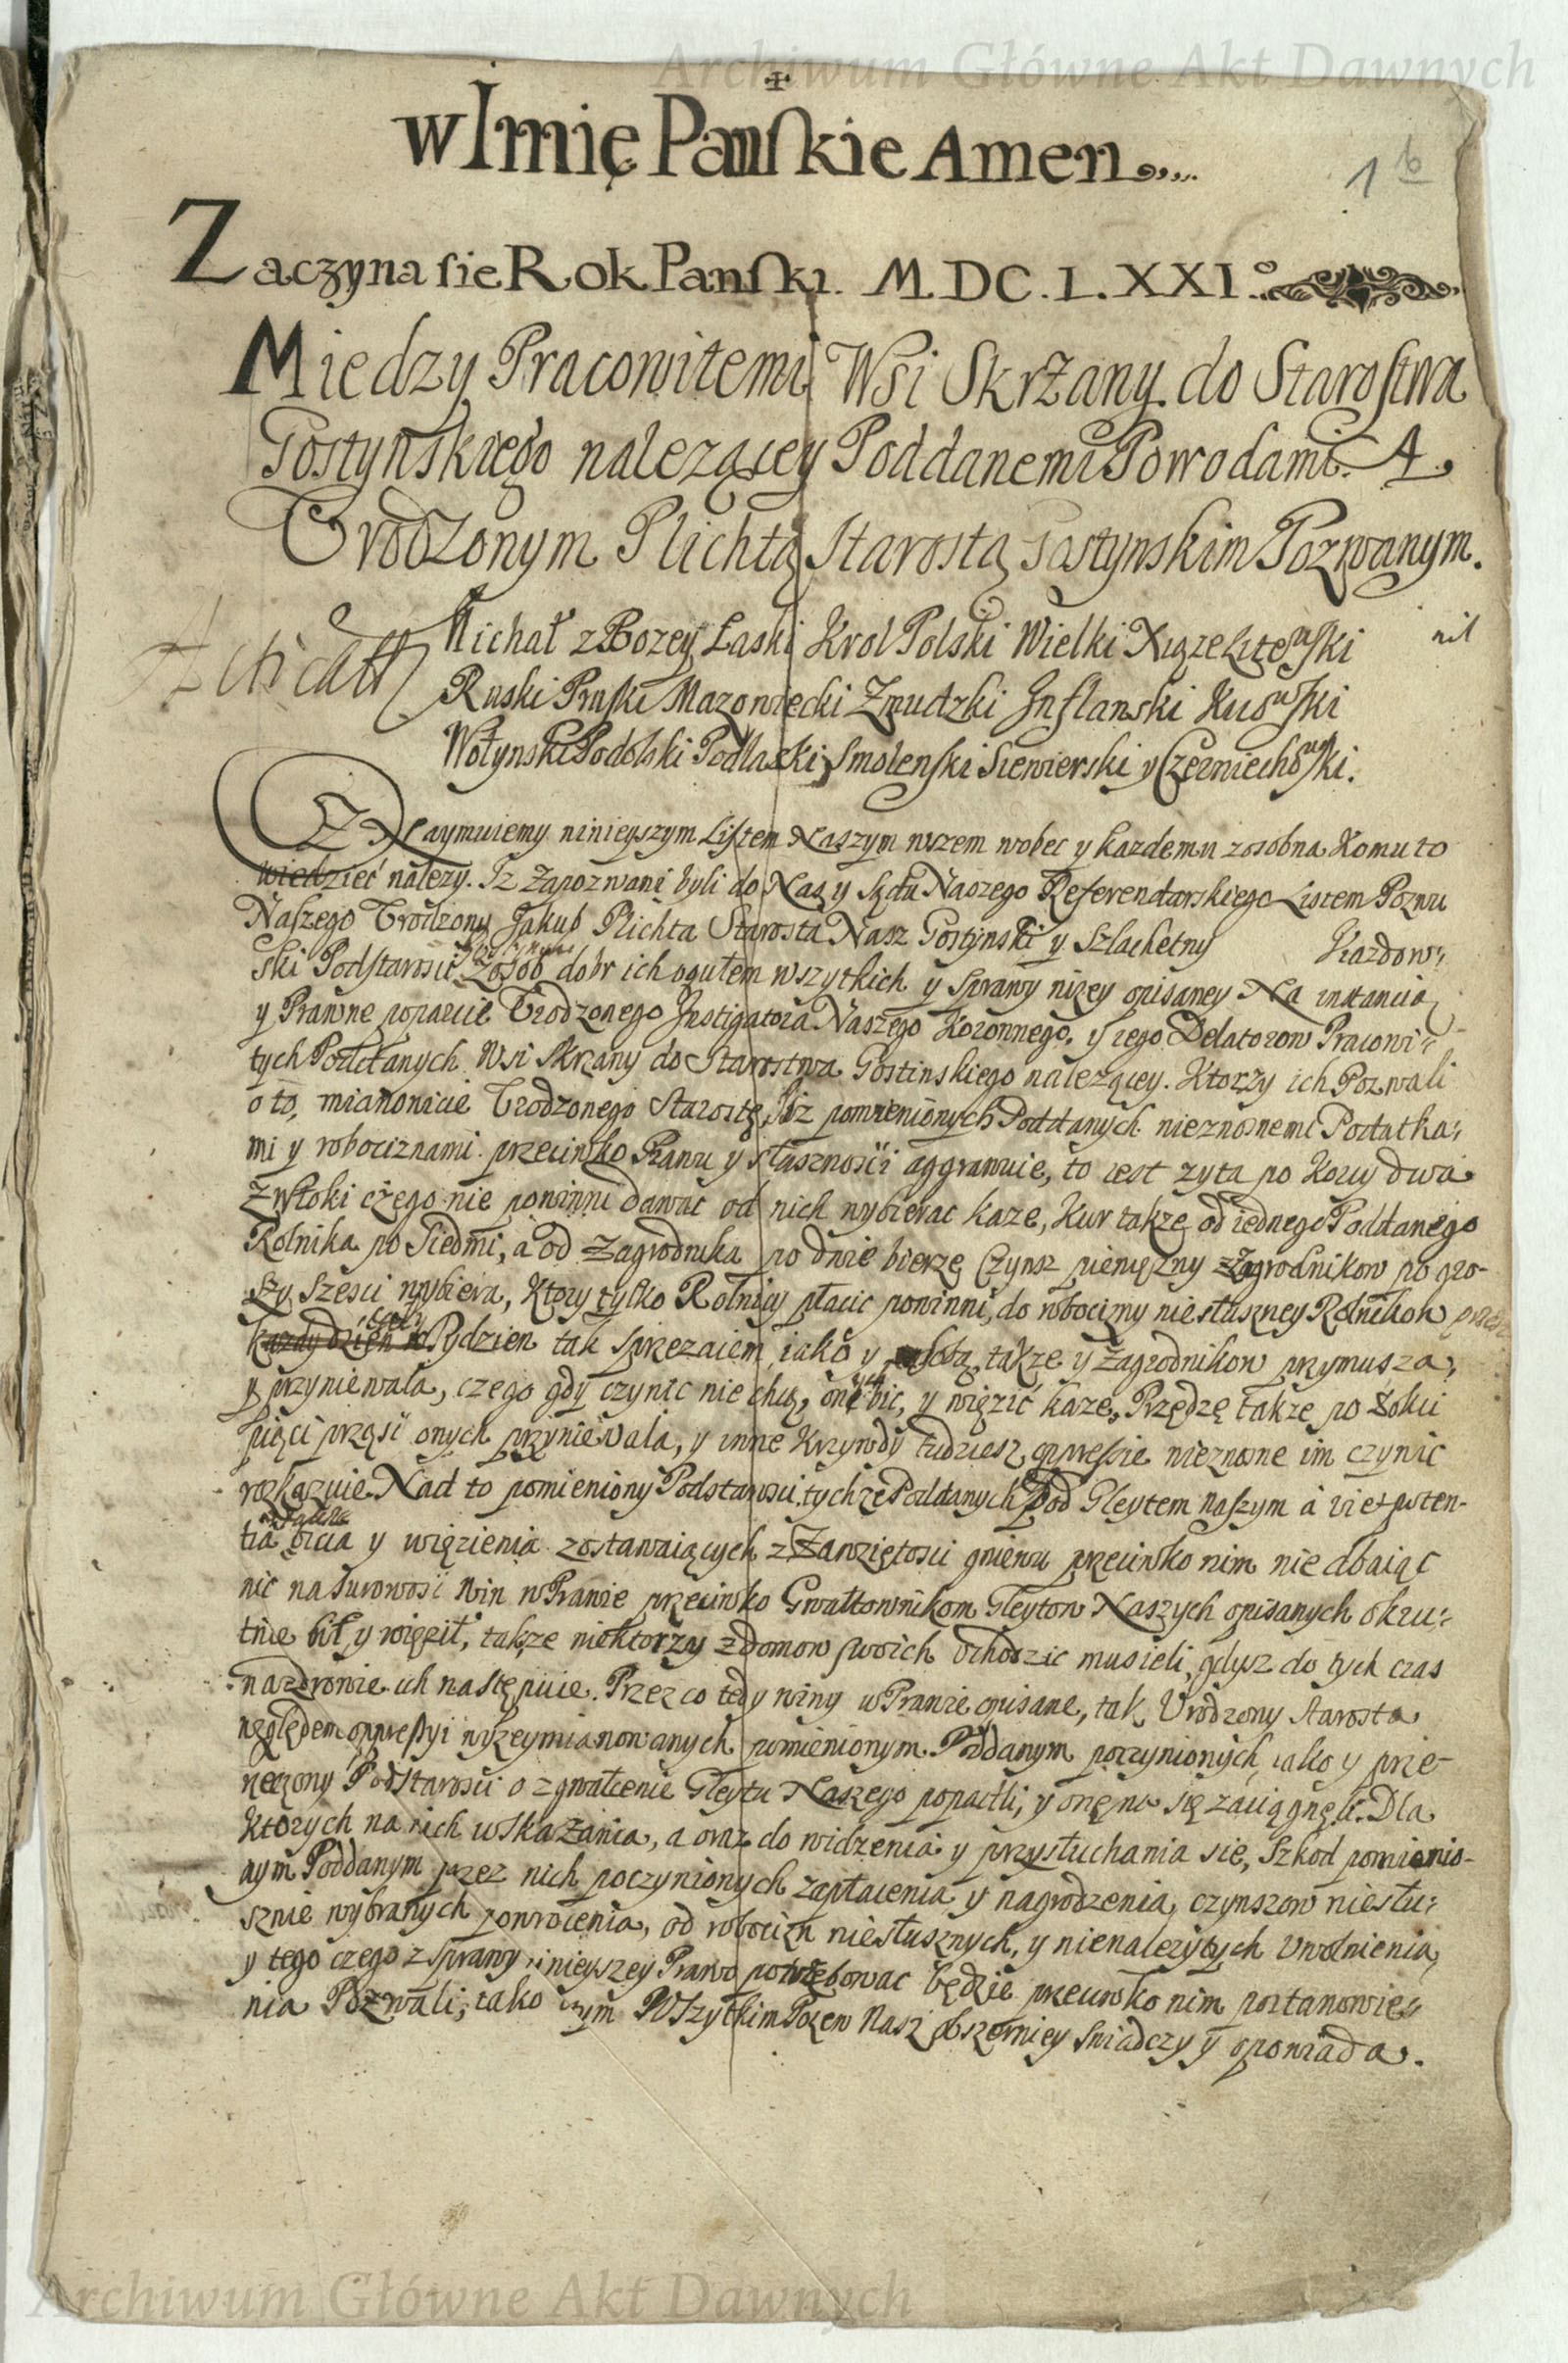 Archiwum Główne Akt Dawnych
w Imię Pańskie Amen
1 b
Zaczyna sie Rok Panski. M.DC.L.XXI.
Miedzy Pracowitemi Wsi Skrzany do Starostwa
Gostynskiego nalezącey Poddanemi Powodami. A
Vrodzonym Plichtą Starostą Gostynskim Pozwanym.
Michał z Bozey Łaski Krol Polski Wielki Xiąze Litewski
nil
Michał
Ruski Pruski Mazowiecki Zmudzki Inflanski Kiiowski
Wołynski Podolski Podlaski Smolenski Siewierski y Czerniechowski.
Oznaymuiemy ninieyszym Listem Naszym wszem wobec y kazdemu zosobna Komu to
wiedzieć nalezy. Iz zapozwani byli do Nas y Sądu Naszego Referendarskiego Listem Pozwu
Naszego Vrodzony Jakub Plichta Starosta Nasz Gostynski y Szlachetny Kazdow:
ski Podstarosci z osob dobr ich ogułem wszytkich y sprawy nizey opisaney Na instancia
y Prawne poparcie Vrodzonego Instigatora Naszego Koronnego, y iego Delatorow Pracowi:
tych Poddanych Wsi Skrzany do Starostwa Gostinskiego nalezącey. Ktorzy ich Pozwali
o to, mianowicie Vrodzonego Starostę, Iż pomienionych Poddanych nieznosnemi Podatka:
mi y robociznami przeciwko Prawu y słusznosci aggrawuie, to iest zyta po Korcy dwa
z włoki czego nie powinni dawac od nich wybierac kaze, Kur takze od iednego Poddanego
Rolnika po Siedmi, a od Zagrodnika po dwie bierze Czynsz pieniężny z Zagrodnikow po gro-
szy szesci wybiera, Ktory tylko Rolnicy płacic powinni, do robocizny niesłuszney Rolnikow przez
kazdy dzien w cały Tydzien tak sprzezaiem iako y sobą, takze y zagrodnikow przymusza,
y przyniewala, czego gdy czynic nie chcą, onych bic, y więzić kaze, Przędzę takze po łokci
pięci prząsć onych przyniewala, y inne Krzywdy tudziesz oppressie nieznosne im czynic
rozkazuie. Nad to pomieniony Podstarosci, tychze Poddanych Pod Gleytem naszym a vi et poten-
tia bicia y więzienia zostawaiących z Zawziętosci gniewu przeciwko nim nie dbaiąc
nic na surowosć win w Prawie przeciwko Gwałtownikom Gleytow Naszych opisanych okru:
tnie bił y więził, takze niektorzy z domow swoich vchodzic musieli, gdysz do tych czas
na zdrowie ich następuie. Przez co tedy winy w Prawie opisane, tak Vrodzony Starosta
względem oppressyi wyzeymianowanych pomienionym Poddanym poczynionych iako y prze-
rzeczony Podstarosci o zgwałcenie Gleytu Naszego popadli, y one na się zaciągnęli. Dla
Ktorych na nich wskazania, a oraz do widzenia y przysłuchania sie, Szkod pomienio-
nym Poddanym przez nich poczynionych zapłacenia y nagrodzenia, czynszow niesłu:
sznie wybranych powrocenia, od robocizn niesłusznych, y nienalezytych vwolnienia,
y tego czego z sprawy ninieyszey Prawo potrzebowac będzie przeciwko nim postanowie:
nia Pozwali, iako o tym Wszytkim Pozew Nasz obszerniey swiadczy y opowiada.
Archiwum Główne Akt Dawnych